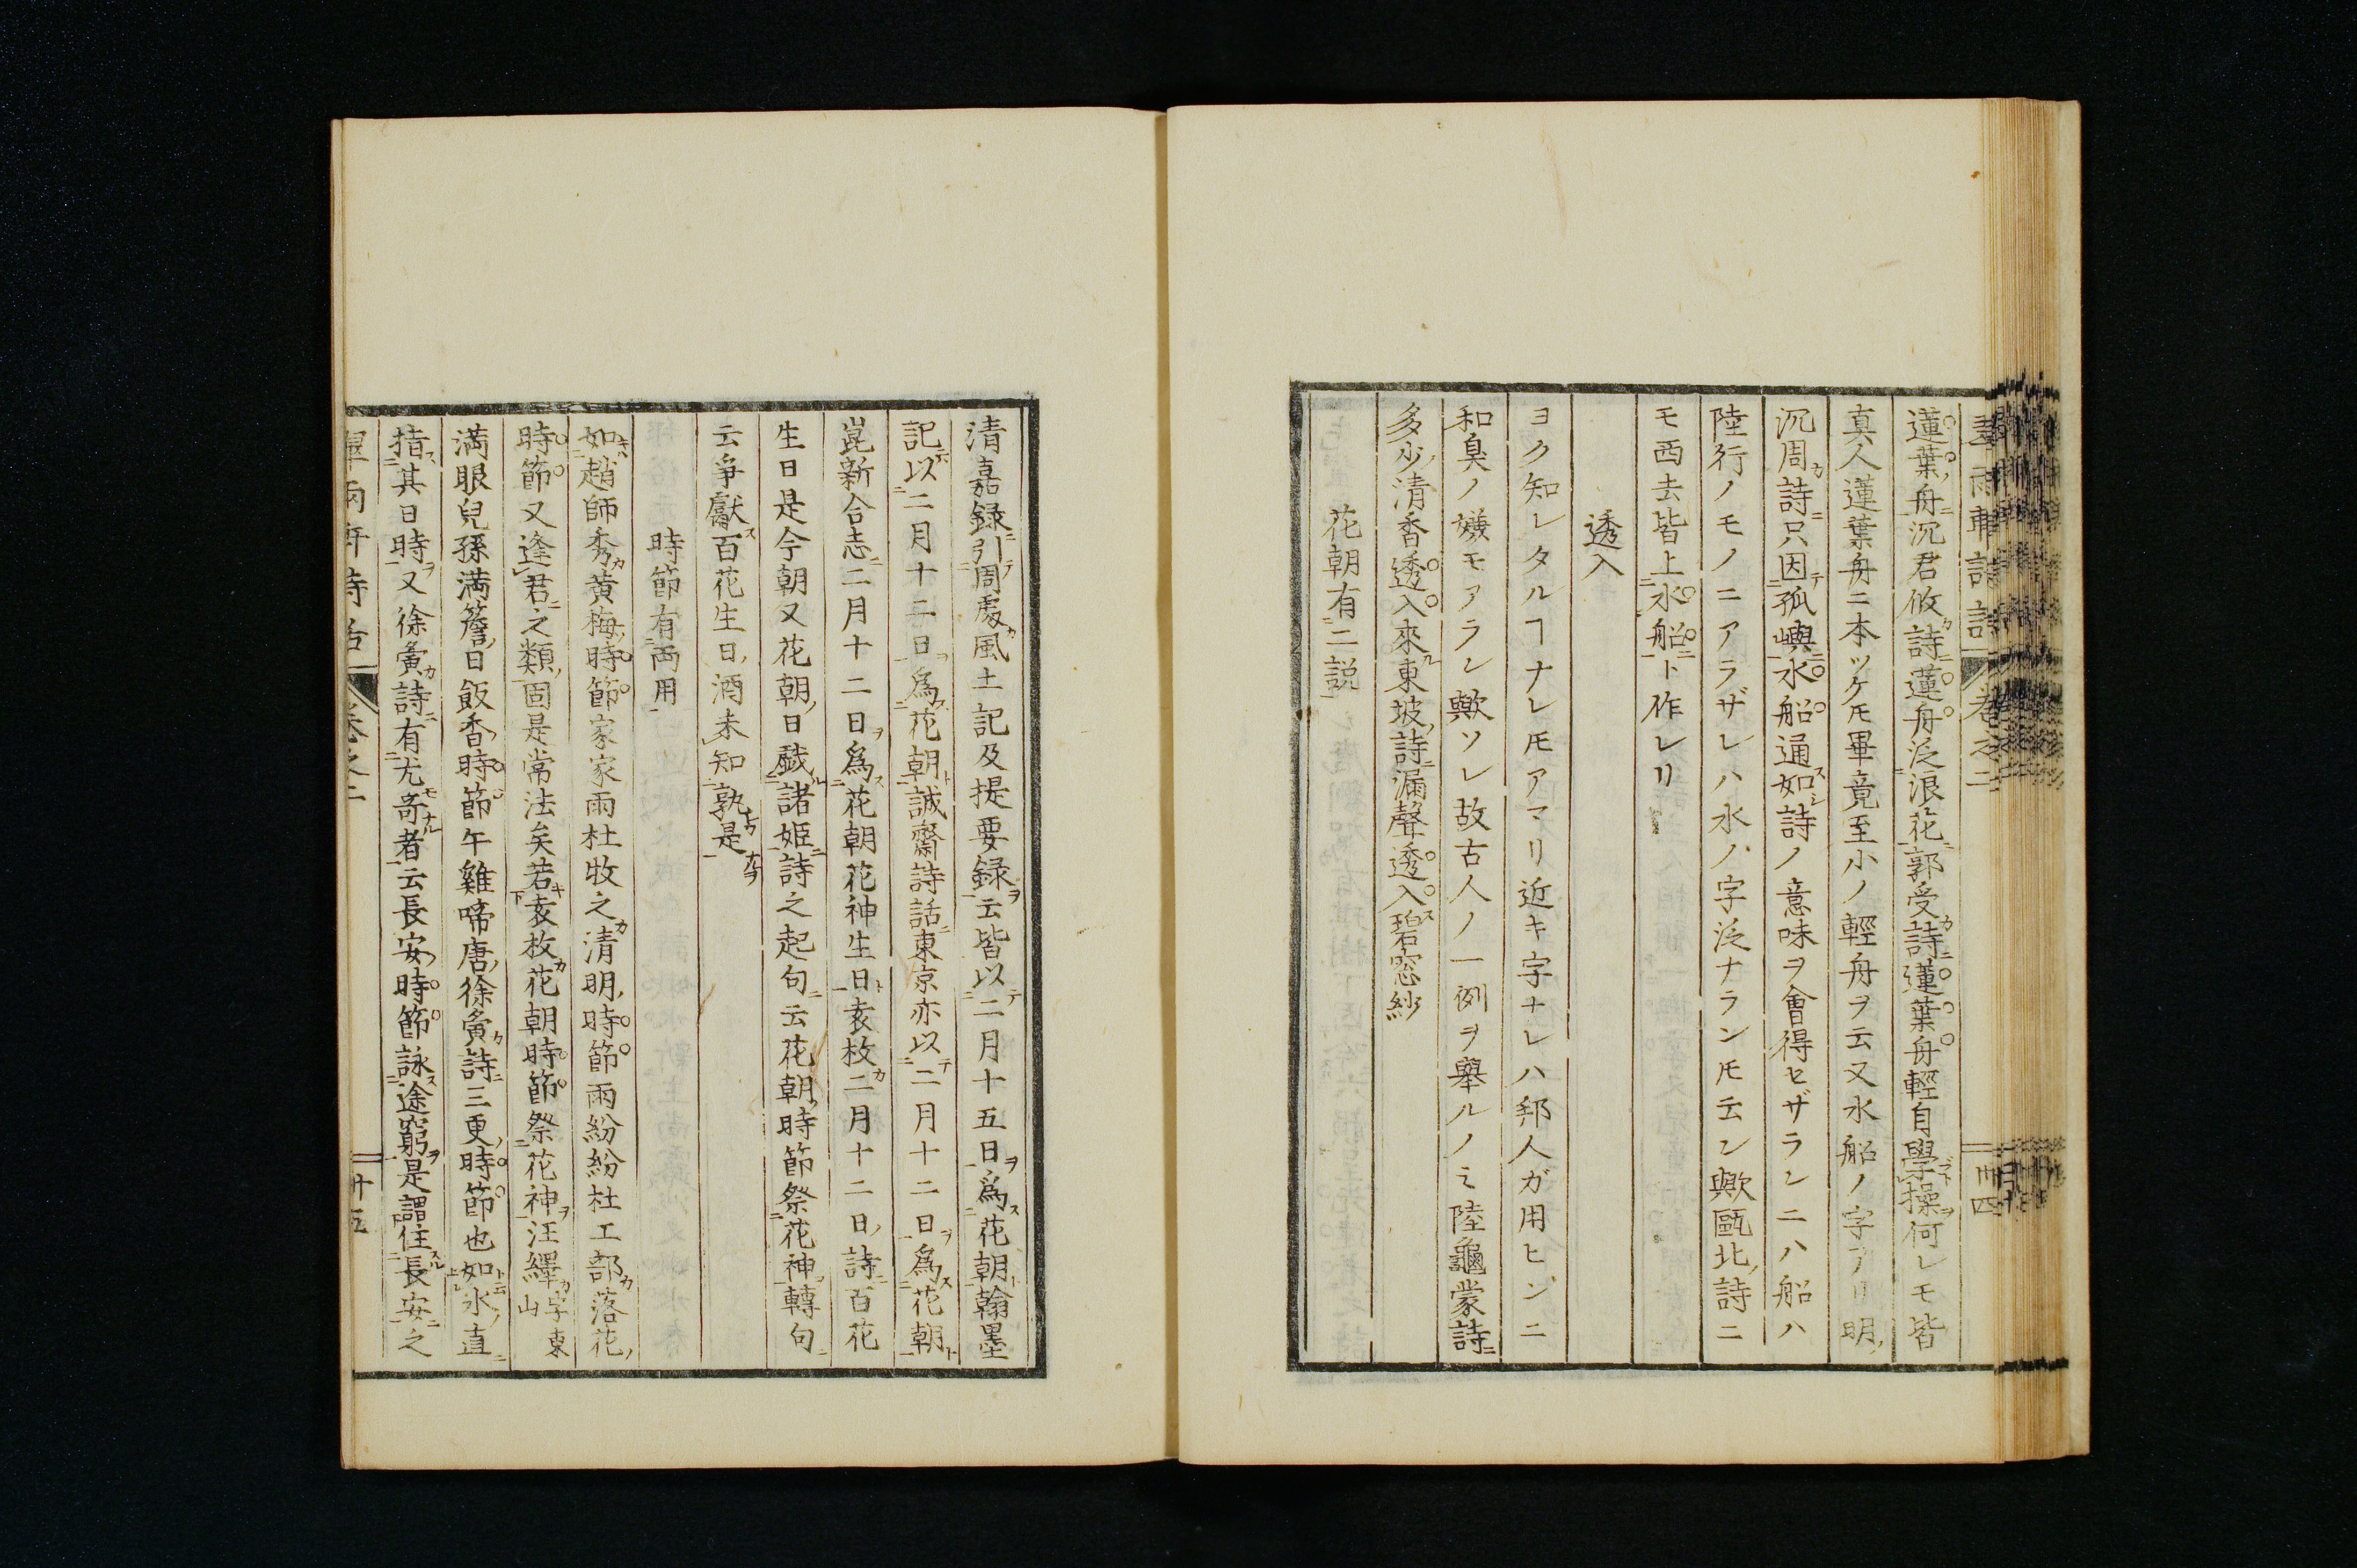 蓮葉舟沉君攸詩蓮舟泛浪花郭受詩蓮葉舟輕自學操何レモ皆
真人蓮葉舟ニ本ツケ𪜈畢竟至小ノ輕舟ヲ云又水船ノ字アリ明
沉周詩只因孤嶼水船通如詩ノ意味ヲ會得セザランニハ船ハ
陸行ノモノニアラザレハ水ノ字泛ナラン𪜈云ン歟甌北詩ニ
モ西去皆上水船ト作レリ
透入
ヨク知レタルヿナレ𪜈アマリ近キ字ナレハ邦人ガ用ヒンニ
和臭ノ嫌モアラン歟ソレ故古人ノ一例ヲ舉ルノミ陸龜蒙詩
多少清香透入來東坡詩漏聲透入碧窓紗
花朝有二説
卷之二
卅四
清嘉録引周處風土記及提要録云皆以二月十五日爲花朝翰墨
記以二月十二日爲花朝誠齋詩話東京亦以二月十二日爲花朝
崑新合志二月十二日爲花朝花神生日袁枚二月十二日詩百花
生日是今朝又花朝日戯諸姫詩之起句云花朝時節祭花神轉句
云爭獻百花生日酒未知孰是
時節有両用
如趙師秀黄梅時節家家雨杜牧之清明時節雨紛紛杜工部落花
時節又逢君之類固是常法矣若袁枚花朝時節祭花神汪繹字東山
満眼兒孫満簷日飯香時節午雞啼唐徐夤詩三更時節也如氷直
指其日時又徐夤詩有尤奇者云長安時節詠途窮是謂住長安之